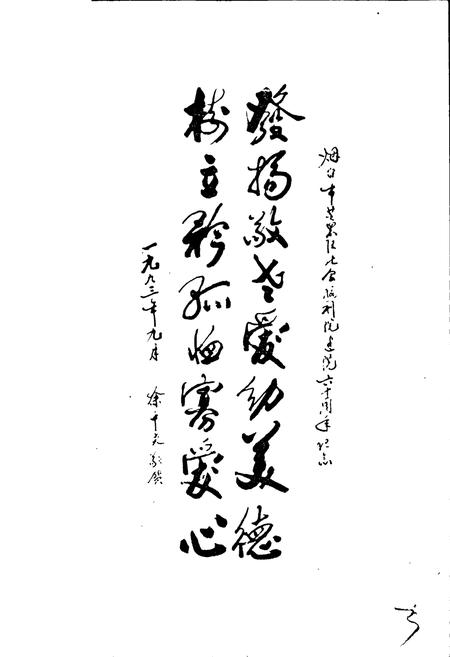 烟台市芝罘区社会福利院建院六十周年纪念
發揚敬老愛幼美德
树立矜孤恤寡愛心
一九九三年九月 徐
敬题